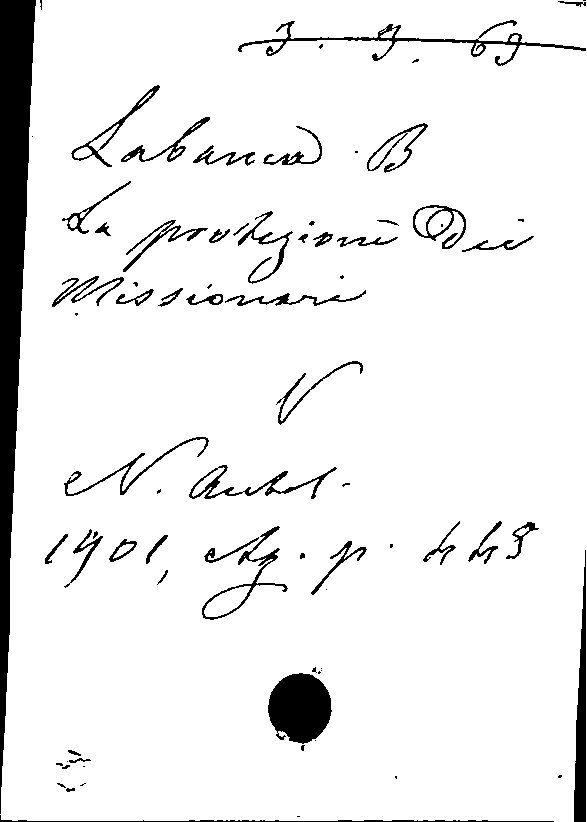 3. 9. 69
Labanca B
La protezione Dei
Missionari
V
N. Antol.
1901, Ag. p. 443